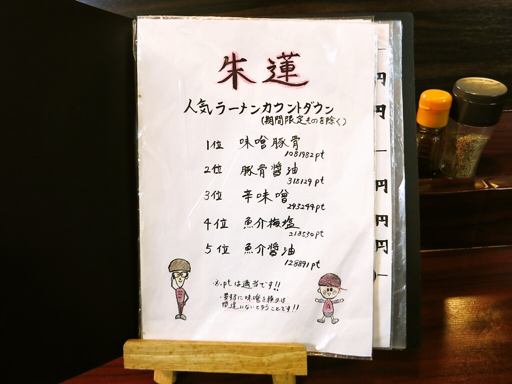 朱蓮
人気ラーメンカウントダウン
(期間限定ものを除く)
1位 味噌豚骨
1081982pt
2位 豚骨醤油
318129pt
3位 辛味噌
293299pt
4位 魚介梅塩
218550pt
5位 魚介醤油
128891pt
※.ptは適当です!!
・要するに味噌を頼めば
間違いないということです!!
円
円
円
円
円